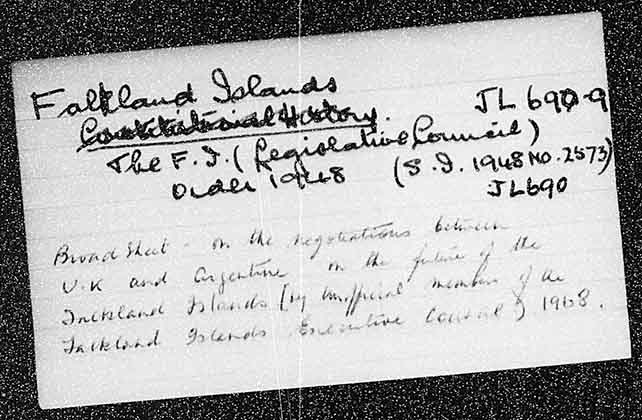 Falkland Islands
Constitutional History. JL 690-9
The F.I. (Legislative Council)
Order 1948 (S.I. 1948 No. 2573)
JL690
Broad Sheet - on the negotiations between
U.K and Argentine on the future of the
Falkland Islands [by Unofficial members of the
Falkland Islands Executive Council) 1968.